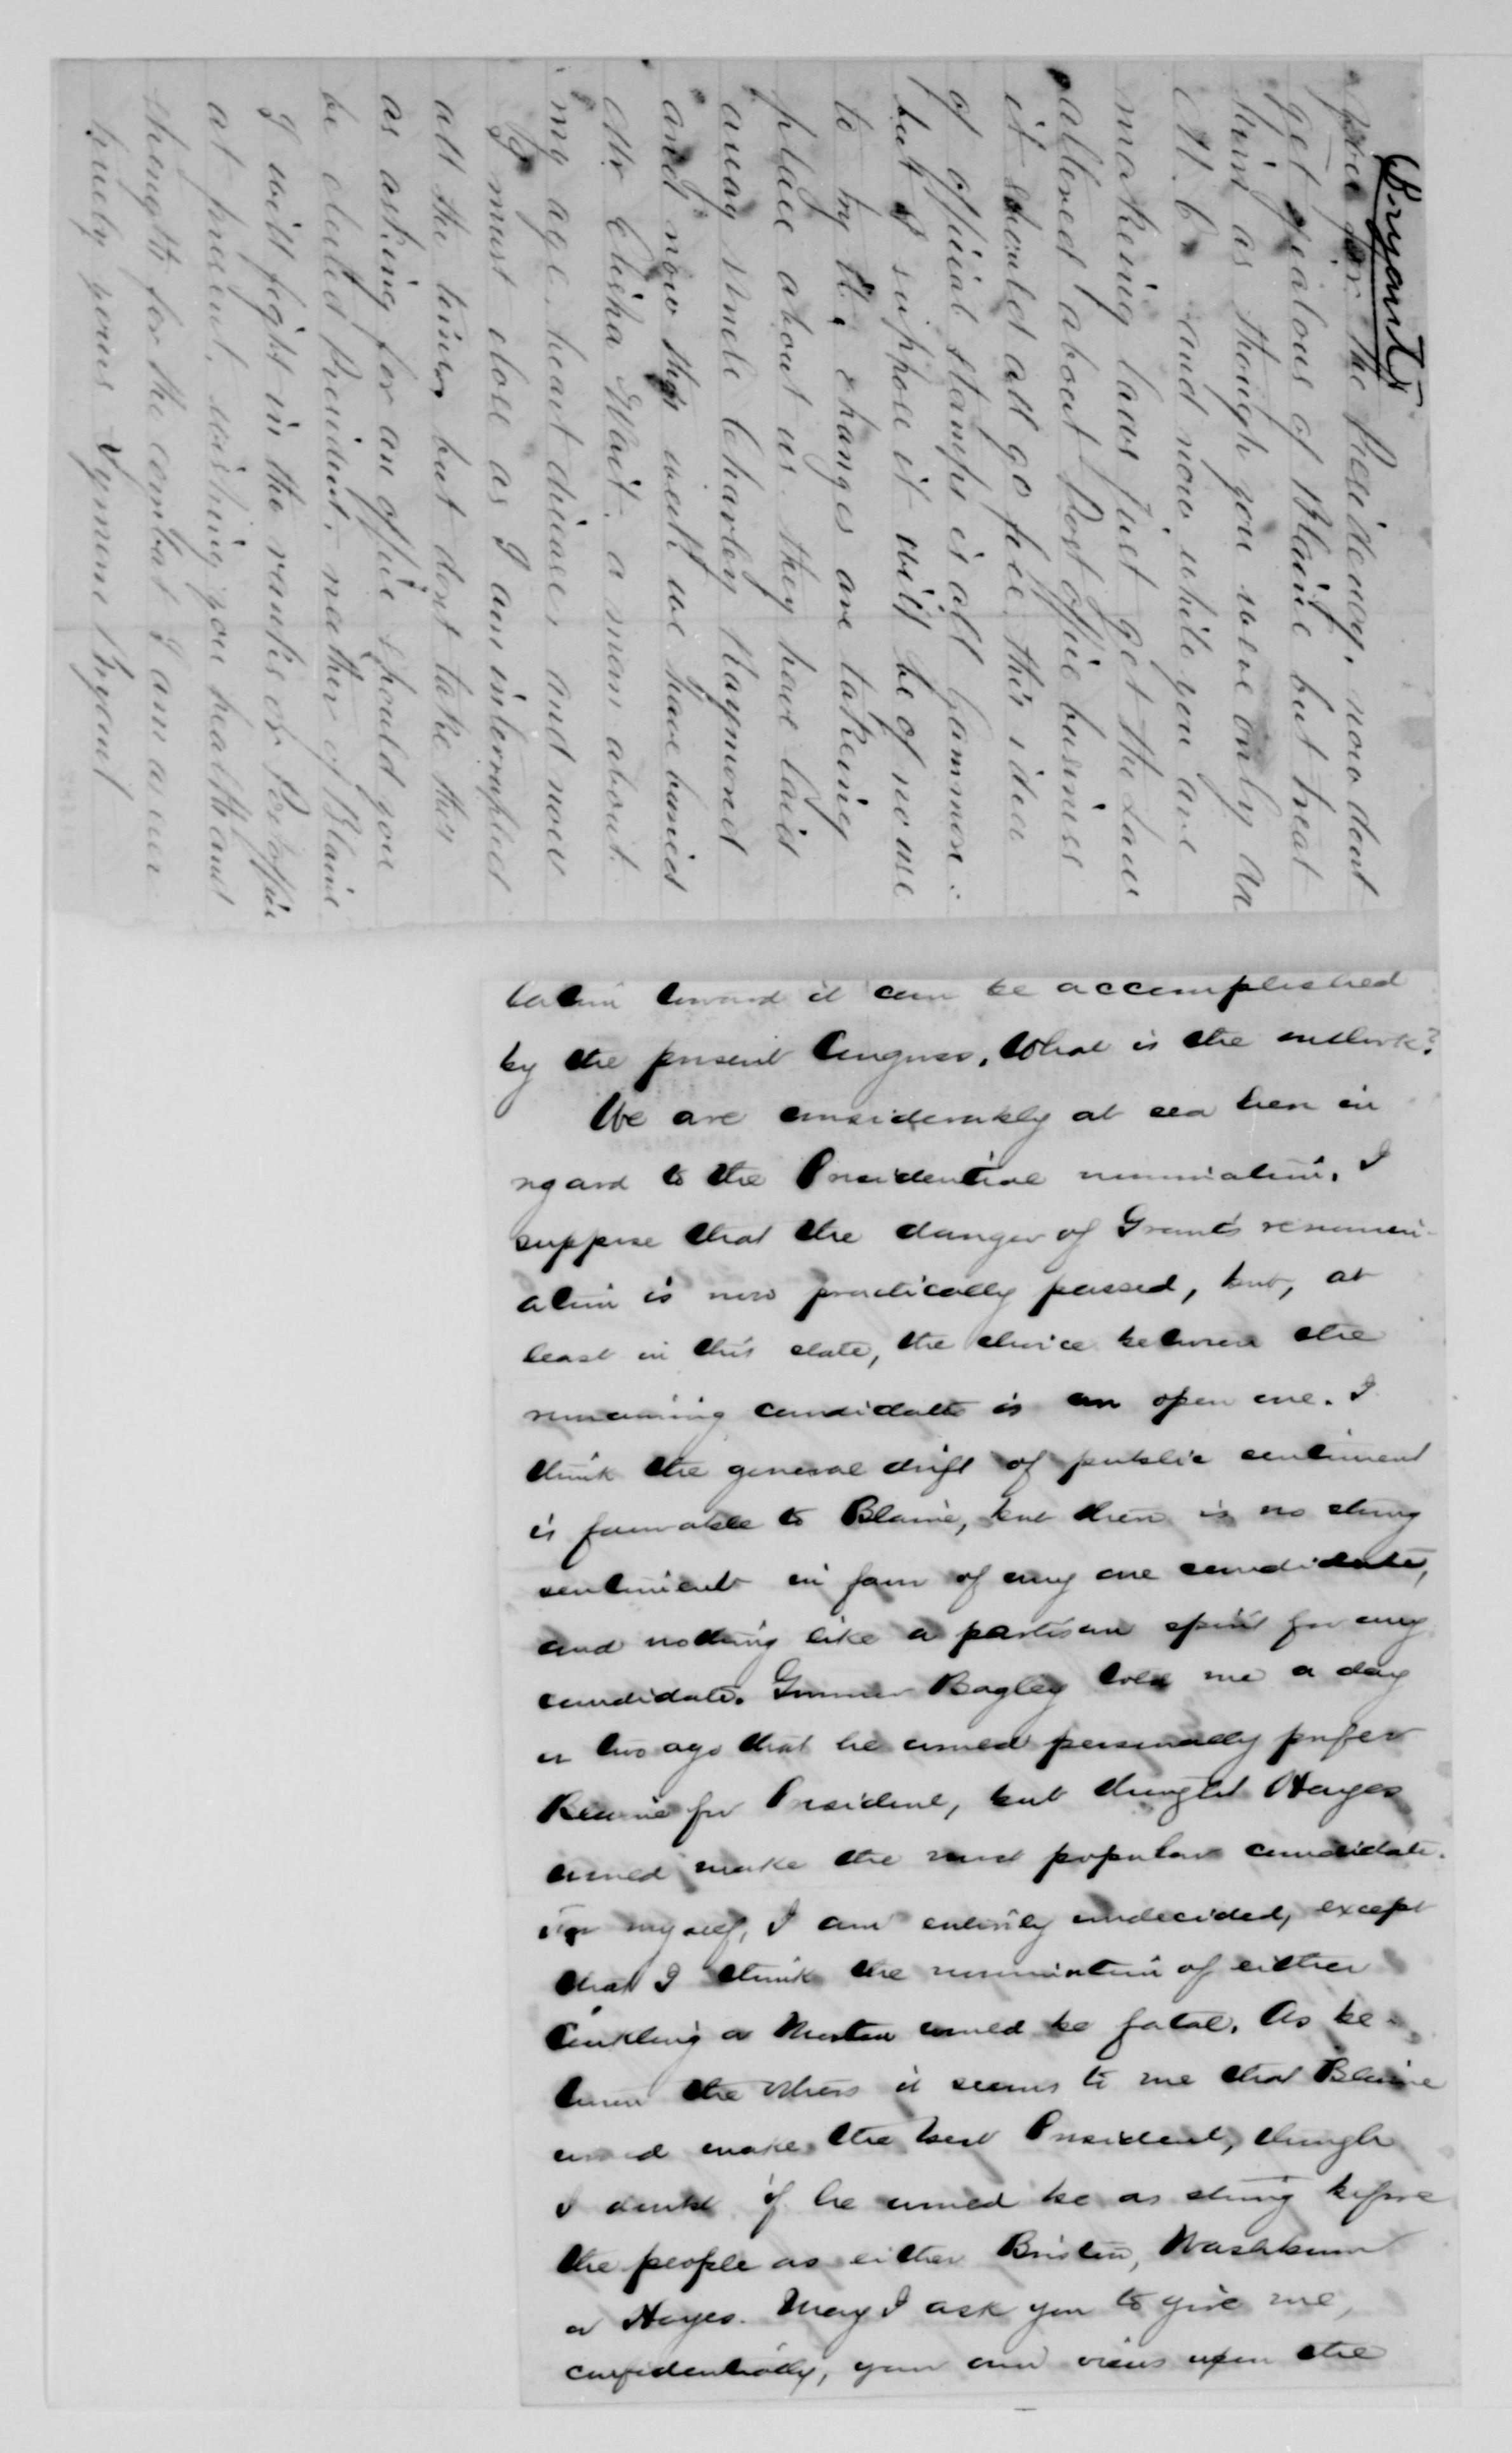 Bryant
you for the Presidency. now dont
get Jealous of Blaine but treat
him as though you were only an
M.C. and now while you are
makeing laws just get the Law
altered about Post office business
it should all go free. this idea
of official stamps is all gammon.
but I suppose it will be of no use
to try it. changes are takeing
place about us. they have laid
away Uncle Charley Raymond
and now this week we have buried
Mr Elisha Wait. a man about
my age. heart disease. and now
I must close as I am interupted
all the time. but dont take this
as asking for an office should you
be elected President. neather of Blaine
I will fight in the ranks or Postoffice
at present. wishing you health and
strength for the combat I am as ever
truely yours Lymond Bryant
lation toward it can be accomplished
by the present Congress. What is the outlook?
We are considerably at sea here in
regard to the Presidential nomination. I
suppose that the danger of Grant's renomin-
ation is now practically passed, but, at
least in this state, the choice between the
remaining candidates is an open one. I
think the general drift of public sentiment
is favorable to Blaine, but there is no strong
sentiment in favor of any one candidate,
and nothing like a partisan spirit for any
candidate. Governor Bagley told me a day
or two ago that he would personally prefer
Blaine for President, but thought Hayes
would make the most popular candidate.
For myself, I am entirely undecided, except
that I think the nomination of either
Conkling or Morton would be fatal. As be-
tween the others it seems to me that Blaine
would make the best President, though
I doubt if he would be as strong before
the people as either Bristow, Washburn
or Hayes. May I ask you to give me,
confidentially, your own views upon the